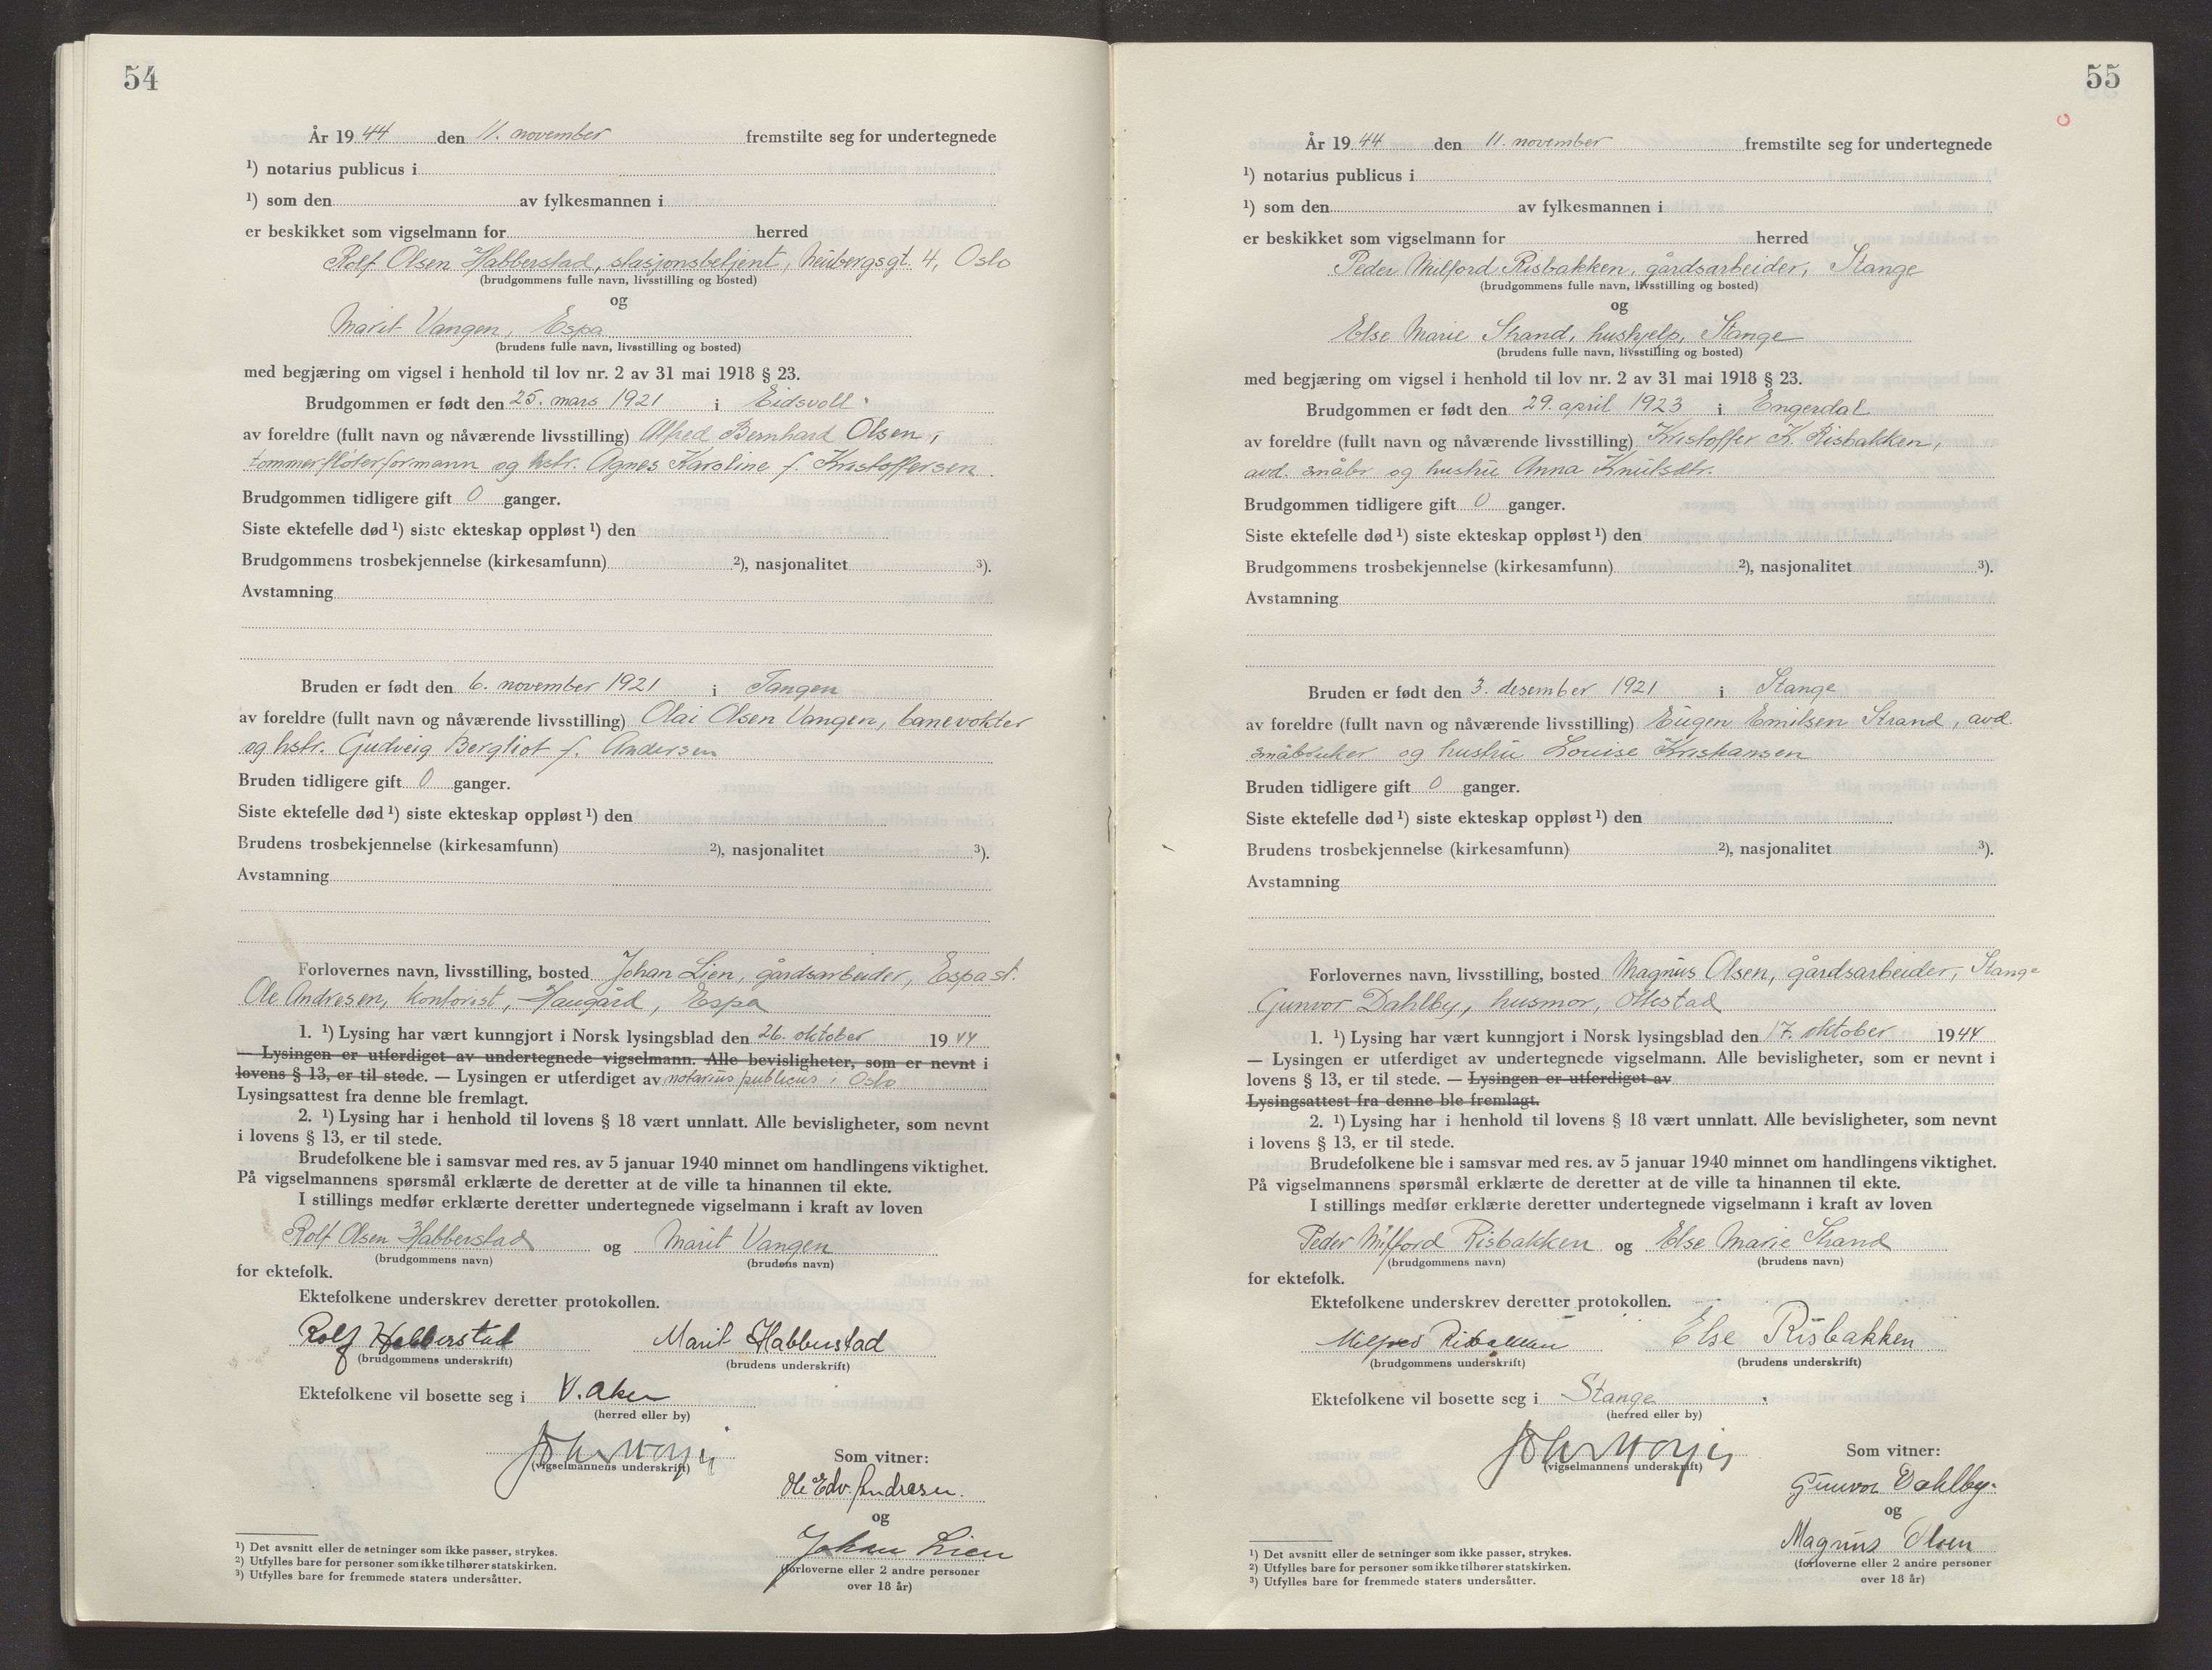 54
År 1944 den 11. november fremstilte seg for undertegnede
¹) notarius publicus i
¹) som den av fylkesmannen i
er beskikket som vigselmann for herred
Rolf Olsen Habberstad, stasjonsbetjent, Neubergsgt. 4, Oslo
(brudgommens fulle navn, livsstilling og bosted)
og
Marit Vangen, Espa
(brudens fulle navn, livsstilling og bosted)
med begjæring om vigsel i henhold til lov nr. 2 av 31 mai 1918 § 23.
Brudgommen er født den 25. mars 1921 i Eidsvoll
av foreldre (fullt navn og nåværende livsstilling) Alfred Bernhard Olsen,
tømmerfløterformann og hstr. Agnes Karoline f. Kristoffersen.
Brudgommen tidligere gift 0 ganger.
Siste ektefelle død ¹) siste ekteskap oppløst ¹) den
Brudgommens trosbekjennelse (kirkesamfunn) ²), nasjonalitet ³).
Avstamning
Bruden er født den 6. november 1921 i Tangen
av foreldre (fullt navn og nåværende livsstilling) Olai Olsen Vangen, banevokter
og hstr. Gudveig Bergliot f. Andersen
Bruden tidligere gift 0 ganger.
Siste ektefelle død ¹) siste ekteskap oppløst ¹) den
Brudens trosbekjennelse (kirkesamfunn) ²), nasjonalitet ³).
Avstamning
Forlovernes navn, livsstilling, bosted Johan Lien, gårdsarbeider, Espa st.
Ole Andresen, kontorist, Haugård, Espa
1. ¹) Lysing har vært kunngjort i Norsk lysingsblad den 26. oktober 1944
— Lysingen er utferdiget av undertegnede vigselmann. Alle bevisligheter, som er nevnt i
lovens § 13, er til stede. — Lysingen er utferdiget av notarius publicus i Oslo
Lysingsattest fra denne ble fremlagt.
2. ¹) Lysing har i henhold til lovens § 18 vært unnlatt. Alle bevisligheter, som nevnt
i lovens § 13, er til stede.
Brudefolkene ble i samsvar med res. av 5 januar 1940 minnet om handlingens viktighet.
På vigselmannens spørsmål erklærte de deretter at de ville ta hinannen til ekte.
I stillings medfør erklærte deretter undertegnede vigselmann i kraft av loven
Rolf Olsen Habberstad og Marit Vangen
(brudgommens navn) (brudens navn)
for ektefolk.
Ektefolkene underskrev deretter protokollen.
Rolf Habberstad Marit Habberstad
(brudgommens underskrift) (brudens underskrift)
Ektefolkene vil bosette seg i V. Aker
(herred eller by)
(vigselmannens underskrift)
Som vitner:
Ole Edv. Andresen.
og
Johan Lien
(forloverne eller 2 andre personer
over 18 år)
¹) Det avsnitt eller de setninger som ikke passer, strykes.
²) Utfylles bare for personer som ikke tilhører statskirken.
³) Utfylles bare for fremmede staters undersåtter.
55
År 1944 den 11. november fremstilte seg for undertegnede
¹) notarius publicus i
¹) som den av fylkesmannen i
er beskikket som vigselmann for herred
Peder Milford Risbakken, gårdsarbeider, Stange
(brudgommens fulle navn, livsstilling og bosted)
og
Else Marie Strand, hushjelp, Stange
(brudens fulle navn, livsstilling og bosted)
med begjæring om vigsel i henhold til lov nr. 2 av 31 mai 1918 § 23.
Brudgommen er født den 29. april 1923 i Engerdal
av foreldre (fullt navn og nåværende livsstilling) Kristoffer K. Risbakken,
avd. småbr og hustru Anna Knutsdtr.
Brudgommen tidligere gift 0 ganger.
Siste ektefelle død ¹) siste ekteskap oppløst ¹) den
Brudgommens trosbekjennelse (kirkesamfunn) ²), nasjonalitet ³).
Avstamning
Bruden er født den 3. desember 1921 i Stange
av foreldre (fullt navn og nåværende livsstilling) Eugen Emilsen Strand, avd.
småbruker og hustru Louise Kristiansen
Bruden tidligere gift 0 ganger.
Siste ektefelle død ¹) siste ekteskap oppløst ¹) den
Brudens trosbekjennelse (kirkesamfunn) ²), nasjonalitet ³).
Avstamning
Forlovernes navn, livsstilling, bosted Magnus Olsen, gårdsarbeider, Stange
Gunvor Dahlby, husmor, Ottestad
1. ¹) Lysing har vært kunngjort i Norsk lysingsblad den 17. oktober 1944
— Lysingen er utferdiget av undertegnede vigselmann. Alle bevisligheter, som er nevnt i
lovens § 13, er til stede. — Lysingen er utferdiget av
Lysingsattest fra denne ble fremlagt.
2. ¹) Lysing har i henhold til lovens § 18 vært unnlatt. Alle bevisligheter, som nevnt
i lovens § 13, er til stede.
Brudefolkene ble i samsvar med res. av 5 januar 1940 minnet om handlingens viktighet.
På vigselmannens spørsmål erklærte de deretter at de ville ta hinannen til ekte.
I stillings medfør erklærte deretter undertegnede vigselmann i kraft av loven
Peder Milford Risbakken og Else Marie Strand
(brudgommens navn) (brudens navn)
for ektefolk.
Ektefolkene underskrev deretter protokollen.
Milford Risbakken Else Risbakken
(brudgommens underskrift) (brudens underskrift)
Ektefolkene vil bosette seg i Stange
(herred eller by)
(vigselmannens underskrift)
Som vitner:
Gunvor Dahlby.
og
Magnus Olsen
(forloverne eller 2 andre personer
over 18 år)
¹) Det avsnitt eller de setninger som ikke passer, strykes.
²) Utfylles bare for personer som ikke tilhører statskirken.
³) Utfylles bare for fremmede staters undersåtter.